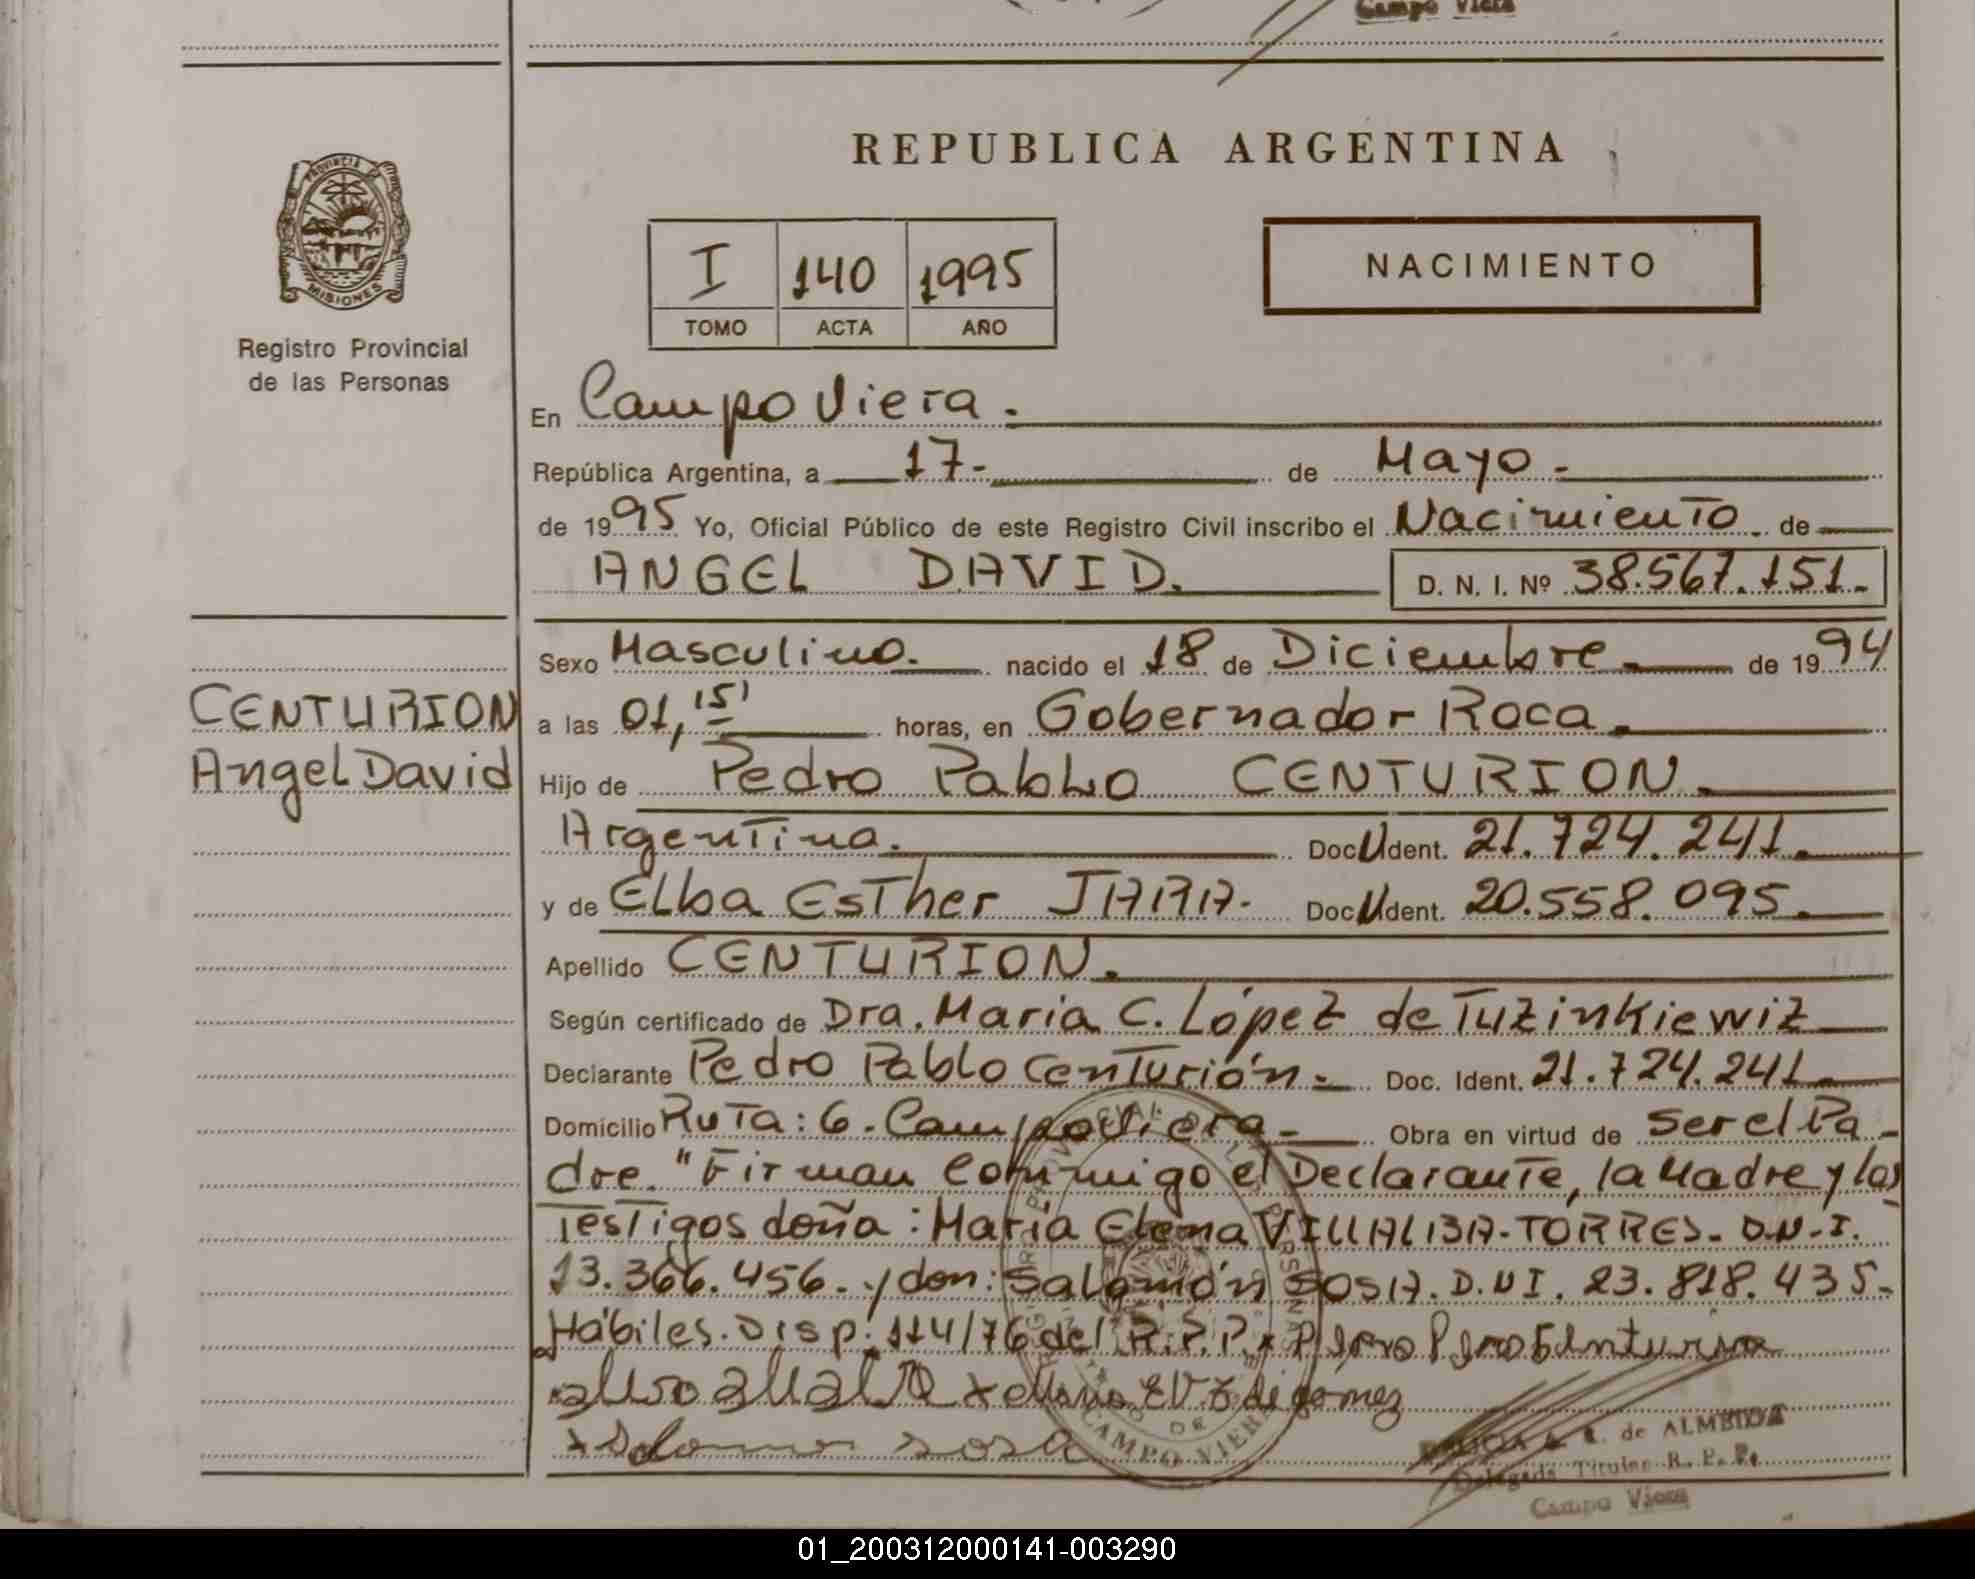 Campo Viera
REPUBLICA ARGENTINA
PROVINCIA
MISIONES
Registro Provincial
de las Personas
I 140 1995
TOMO ACTA AÑO
NACIMIENTO
En Campo Viera.
República Argentina, a 17- de Mayo.
de 1995 Yo, Oficial Público de este Registro Civil inscribo el Nacimiento de
ANGEL DAVID. D. N. I. Nº 38.567.151.
Sexo Masculino. nacido el 18 de Diciembre de 1994
CENTURION
Angel David
a las 01,15' horas, en Gobernador Roca.
Hijo de Pedro Pablo CENTURION.
Argentina. Doc. Ident. 21.724.241.
y de Elba Esther JARA. Doc. Ident. 20.558.095.
Apellido CENTURION.
Según certificado de Dra. Maria C. López de Tuzinkiewiz
Declarante Pedro Pablo Centurión. Doc. Ident. 21.724.241
Domicilio Ruta: 6. Campo Viera. Obra en virtud de ser el Pa-
dre. "Firman conmigo el Declarante, la Madre y los
Testigos doña: Maria Elena VILLALBA-TORRES. D.N.I.
13.366.456. y don: Salomón SOSA. D.N.I. 23.818.435.
Hábiles. Disp: 114/76 del R.P.P.
CAMPO VIERA
de ALMEIDA
Delegada Titular R. P. P.
Campo Viera
01_200312000141-003290